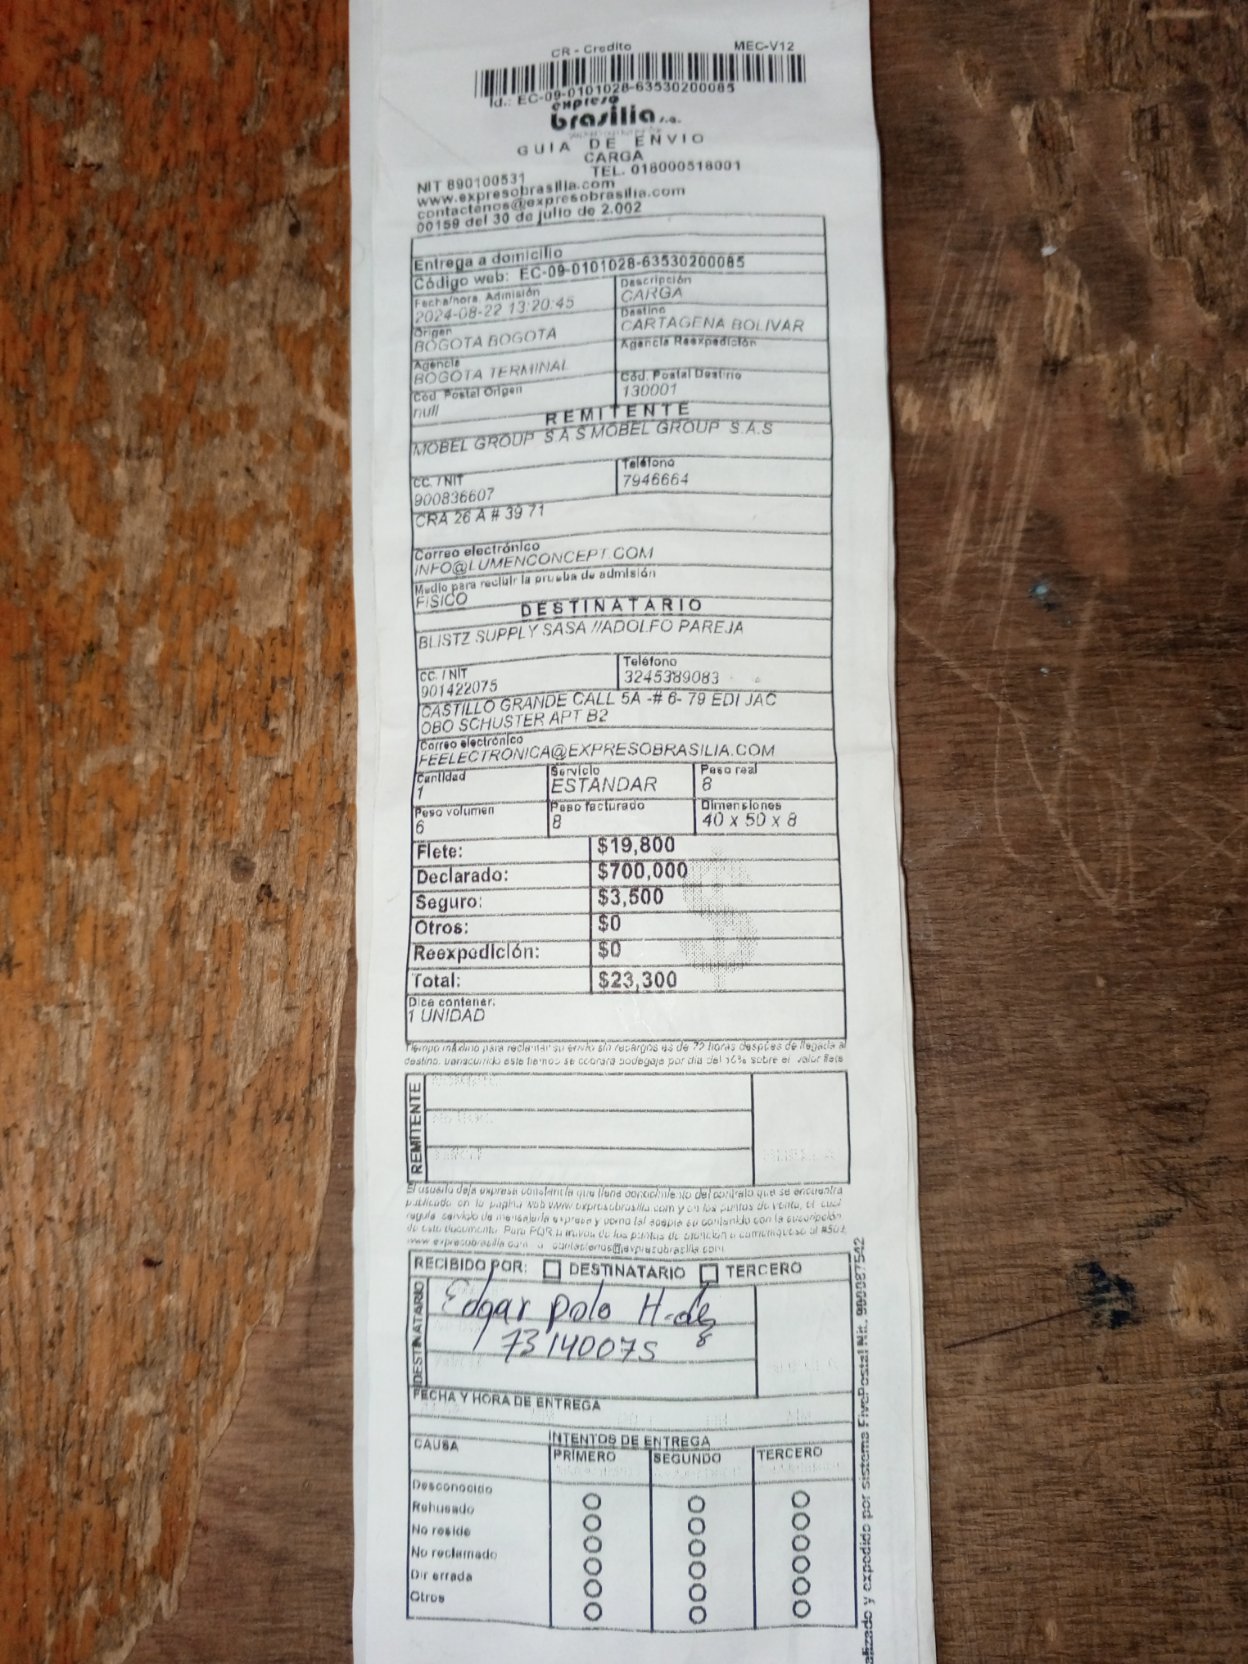 CR - Credito MEC-V12
Id.: EC-09-0101028-63530200085
expreso
brasilia s.a.
GUIA DE ENVIO
CARGA
NIT 890100531 TEL. 018000518001
www.expresobrasilia.com
contactenos@expresobrasilia.com
00159 del 30 de julio de 2.002
Entrega a domicilio
Código web: EC-09-0101028-63530200085
Fecha/hora Admisión Descripción
2024-08-22 13:20:45 CARGA
Origen Destino
BOGOTA BOGOTA CARTAGENA BOLIVAR
Agencia Agencia Reexpedición
BOGOTA TERMINAL
Cód. Postal Origen Cód. Postal Destino
null 130001
REMITENTE
MOBEL GROUP S A S MOBEL GROUP S.A.S
CC. / NIT Teléfono
900836607 7946664
CRA 26 A # 39 71
Correo electrónico
INFO@LUMENCONCEPT.COM
Medio para recibir la prueba de admisión
FISICO
DESTINATARIO
BLISTZ SUPPLY SASA //ADOLFO PAREJA
CC. / NIT Teléfono
901422075 3245389083
CASTILLO GRANDE CALL 5A -# 6- 79 EDI JAC
OBO SCHUSTER APT B2
Correo electrónico
FEELECTRONICA@EXPRESOBRASILIA.COM
Cantidad Servicio Peso real
1 ESTANDAR 8
Peso volumen Peso facturado Dimensiones
6 8 40 x 50 x 8
Flete: $19,800
Declarado: $700,000
Seguro: $3,500
Otros: $0
Reexpedición: $0
Total: $23,300
Dice contener:
1 UNIDAD
Tiempo máximo para reclamar su envío sin recargos es de 72 horas después de llegada al
destino, transcurrido este tiempo se cobrara bodegaje por día del sobre el valor flete
REMITENTE
El usuario deja expresa constancia que tiene conocimiento del contrato que se encuentra
publicado en la página web www.expresobrasilia.com y en los puntos de venta, el cual
regula servicio de mensajería expresa y como tal acepta su contenido con la suscripción
de este documento. Para PQR a través de los puntos de atención o comuníquese al #502,
www.expresobrasilia.com o contactenos@expresobrasilia.com
RECIBIDO POR: DESTINATARIO TERCERO
DESTINATARIO
Edgar polo H-dez
73140075
FECHA Y HORA DE ENTREGA
CAUSA INTENTOS DE ENTREGA
PRIMERO SEGUNDO TERCERO
Desconocido
Rehusado
No reside
No reclamado
Dir errada
Otros
y expedido por sistema FivePostal Nit. 900087542